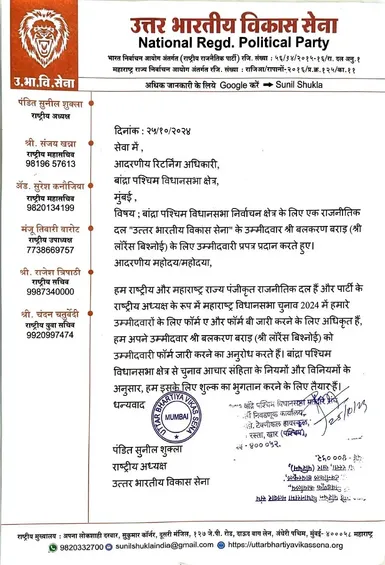 उत्तर भारतीय विकास सेना
National Regd. Political Party
भारत निर्वाचन आयोग अंतर्गत (राष्ट्रीय राजनैतिक पार्टी) रजि. संख्या : ५६/३४/२०१५-१६/रा. दल अनु.१
महाराष्ट्र राज्य निर्वाचन आयोग अंतर्गत रजि. संख्या : राजिआ/रापानों-२०१६/प्र.क्र.१२५/का.११
उ.भा.वि.सेना
अधिक जानकारी के लिये Google करें → Sunil Shukla
पंडित सुनील शुक्ला
राष्ट्रीय अध्यक्ष
श्री. संजय खन्ना
राष्ट्रीय महासचिव
98196 57613
ॲड. सुरेश कनौजिया
राष्ट्रीय महासचिव
9820134199
मंजू तिवारी बारोट
राष्ट्रीय उपाध्यक्ष
7738669757
श्री. राजेश त्रिपाठी
राष्ट्रीय सचिव
9987340000
श्री. चंदन चतुर्वेदी
राष्ट्रीय युवा सचिव
9920997474
दिनांक : २५/१०/२०२४
सेवा में ,
आदरणीय रिटर्निंग अधिकारी,
बांद्रा पश्चिम विधानसभा क्षेत्र,
मुंबई ,
विषय ; बांद्रा पश्चिम विधानसभा निर्वाचन क्षेत्र के लिए एक राजनीतिक
दल "उत्तर भारतीय विकास सेना" के उम्मीदवार श्री बलकरण बराड़ (श्री
लॉरेंस बिश्नोई) के लिए उम्मीदवारी प्रपत्र प्रदान करते हुए।
आदरणीय महोदय/महोदया,
हम राष्ट्रीय और महाराष्ट्र राज्य पंजीकृत राजनीतिक दल हैं और पार्टी के
राष्ट्रीय अध्यक्ष के रूप में महाराष्ट्र विधानसभा चुनाव 2024 में हमारे
उम्मीदवारों के लिए फॉर्म ए और फॉर्म बी जारी करने के लिए अधिकृत हैं,
हम अपने उम्मीदवार श्री बलकरण बराड़ (श्री लॉरेंस बिश्नोई) को
उम्मीदवारी फॉर्म जारी करने का अनुरोध करते हैं। बांद्रा पश्चिम
विधानसभा क्षेत्र से चुनाव आचार संहिता के नियमों और विनियमों के
अनुसार, हम इसके लिए शुल्क का भुगतान करने के लिए तैयार हैं।
धन्यवाद
UTTAR BHARTIYA VIKAS SENA
MUMBAI
बांद्रे पश्चिम विधानसभा
निवडणूक कार्यालय,
टेक्नीकल हायस्कूल,
रस्ता, खार (पश्चिम),
- ४०० ०५२.
पंडित सुनील शुक्ला
राष्ट्रीय अध्यक्ष
उत्तर भारतीय विकास सेना
राष्ट्रीय मुख्यालय : अपना लोकशाही दरबार, सुकुमार कॉर्नर, दूसरी मंजिल, १२७ जे.पी. रोड, दाऊद बाग लेन, अंधेरी पश्चिम, मुंबई- ४०००५८ महाराष्ट्र
9820332700 sunilshuklaindia@gmail.com https://uttarbhartiyavikassena.org